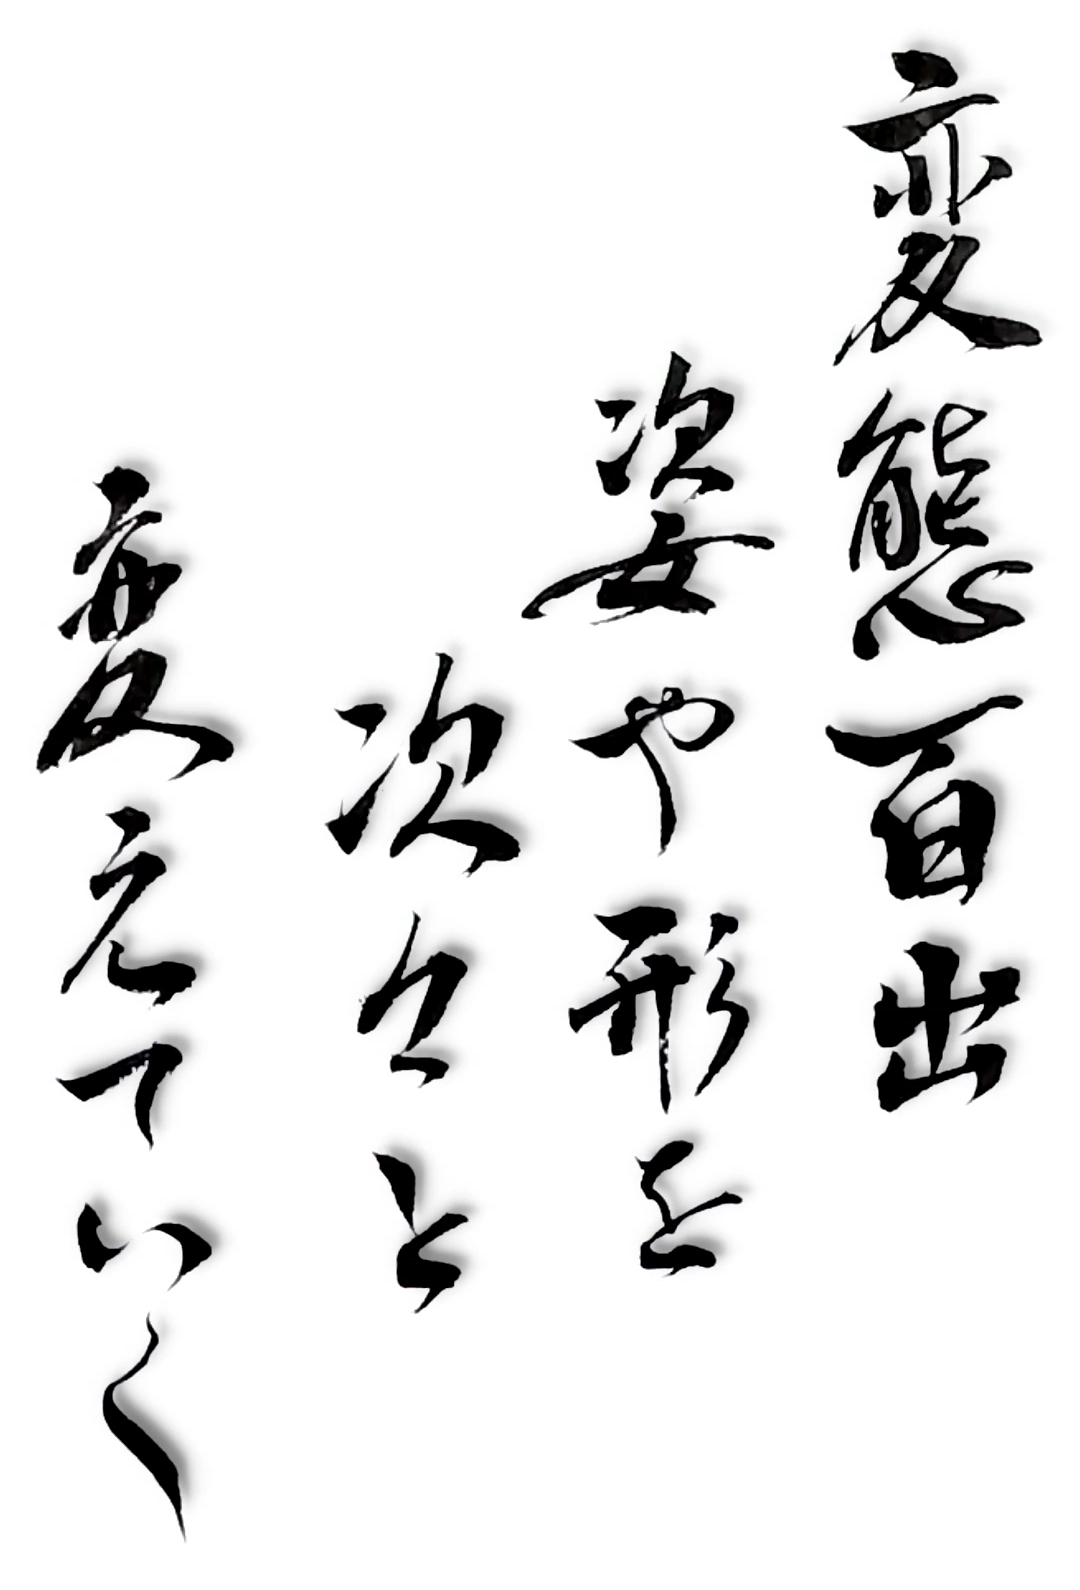 変態百出
姿や形を
次々と
変えていく